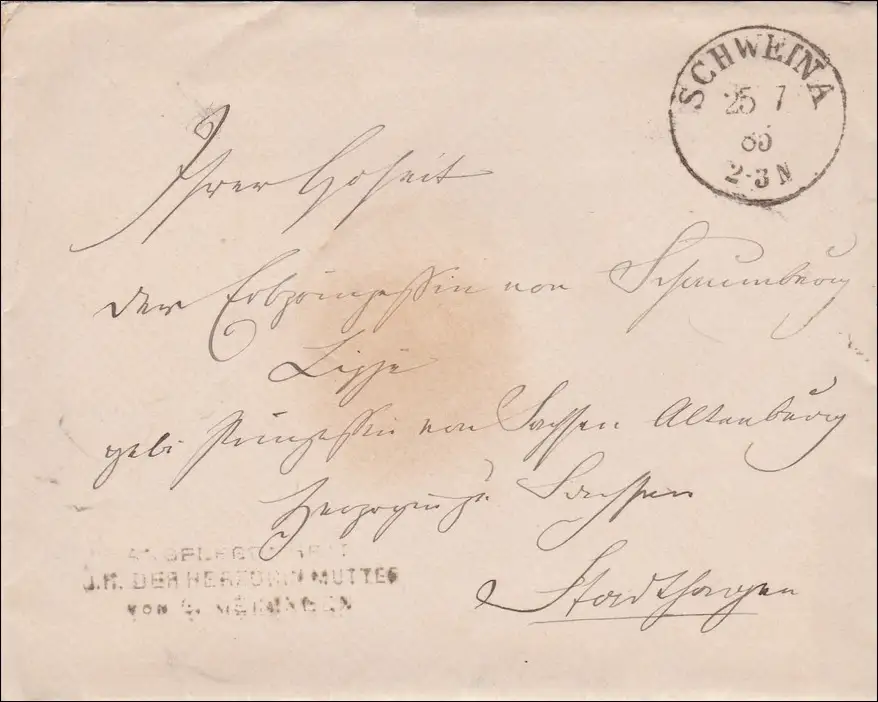 SCHWEINA
25 7
85
2-3 N
Ihrer Hoheit
der Erbprinzessin von Schaumburg
Lippe
geb. Prinzessin von Sachsen Altenburg
Herzogin zu Sachsen
Stadthagen
ANGELEGENHEIT
J.H. DER HERZOGIN MUTTER
VON S. MEININGEN